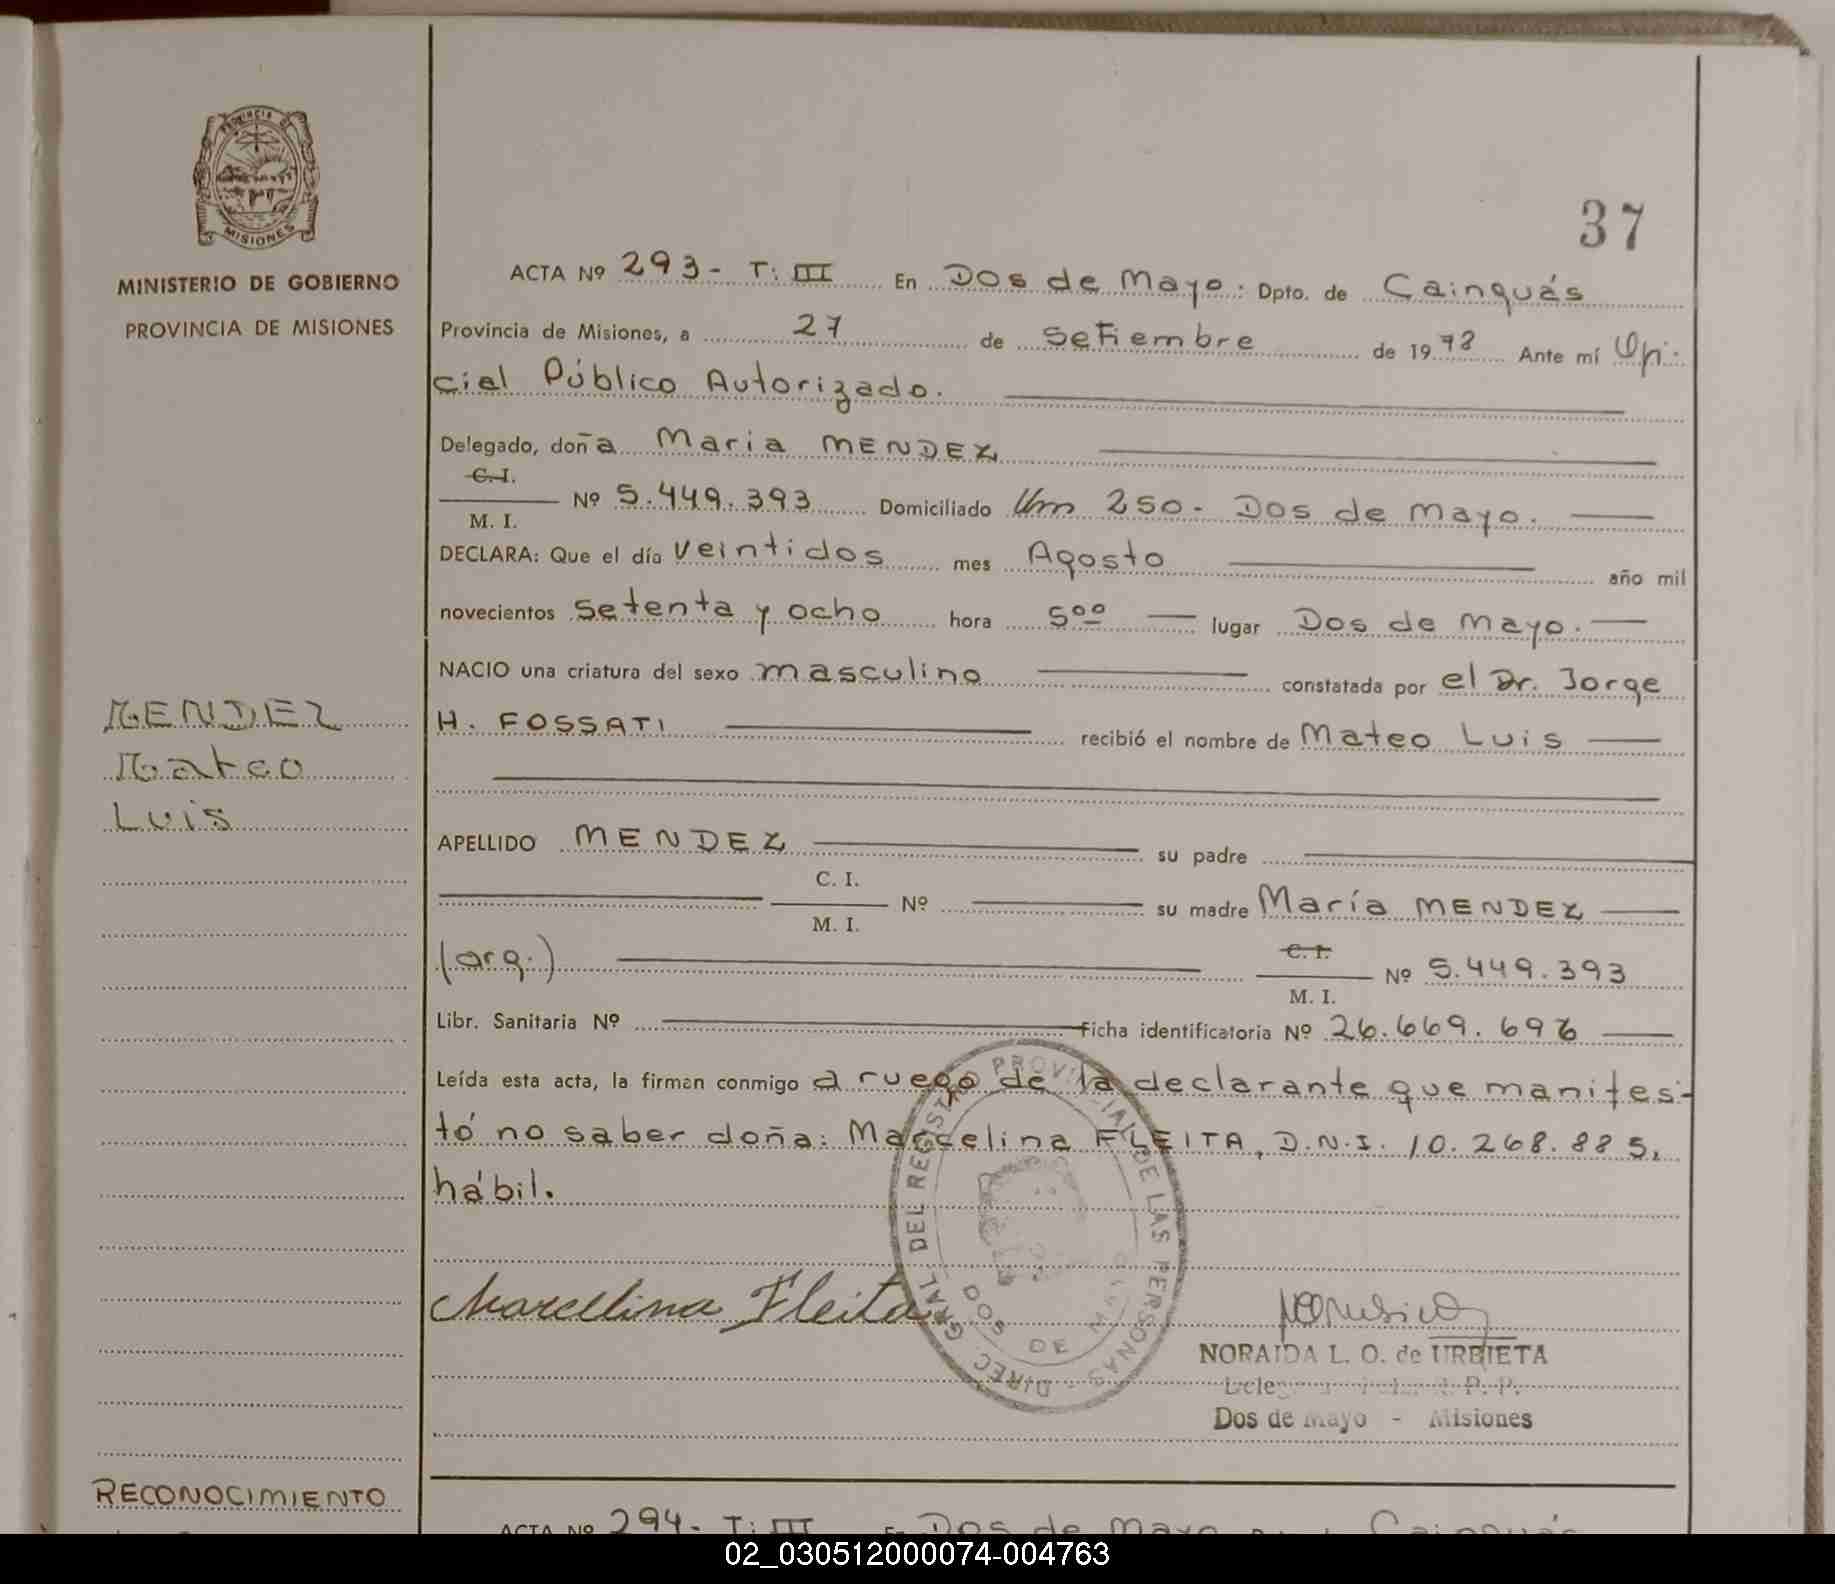 PROVINCIA DE
MISIONES
MINISTERIO DE GOBIERNO
PROVINCIA DE MISIONES
37
ACTA Nº 293- T: III En Dos de Mayo: Dpto. de Cainguás
Provincia de Misiones, a 27 de Setiembre de 1978 Ante mí Ofi-
cial Público Autorizado.
Delegado, doña Maria MENDEZ
C.I.
M. I. Nº 5.449.393 Domiciliado Km 250- Dos de Mayo.
DECLARA: Que el día veintidos mes Agosto año mil
novecientos setenta y ocho hora 5ºº lugar Dos de Mayo.
NACIO una criatura del sexo masculino constatada por el Dr. Jorge
H. FOSSATI recibió el nombre de Mateo Luis
MENDEZ
Mateo
Luis
APELLIDO MENDEZ su padre
C. I.
M. I. Nº su madre María MENDEZ
(arg.) C. I.
M. I. Nº 5.449.393
Libr. Sanitaria Nº Ficha identificatoria Nº 26.669.696
Leída esta acta, la firman conmigo a ruego de la declarante que manifes-
tó no saber doña: Marcelina FLEITA, D.N.I. 10.268.885,
hábil.
DIREC. GRAL DEL REGISTRO PROVINCIAL DE LAS PERSONAS -
DOS DE MAYO
Marcelina Fleita
NORAIDA L. O. de URBIETA
R. P. P.
Dos de Mayo - Misiones
RECONOCIMIENTO
ACTA Nº 294- T: III En Dos de Mayo Cainguás
02_030512000074-004763